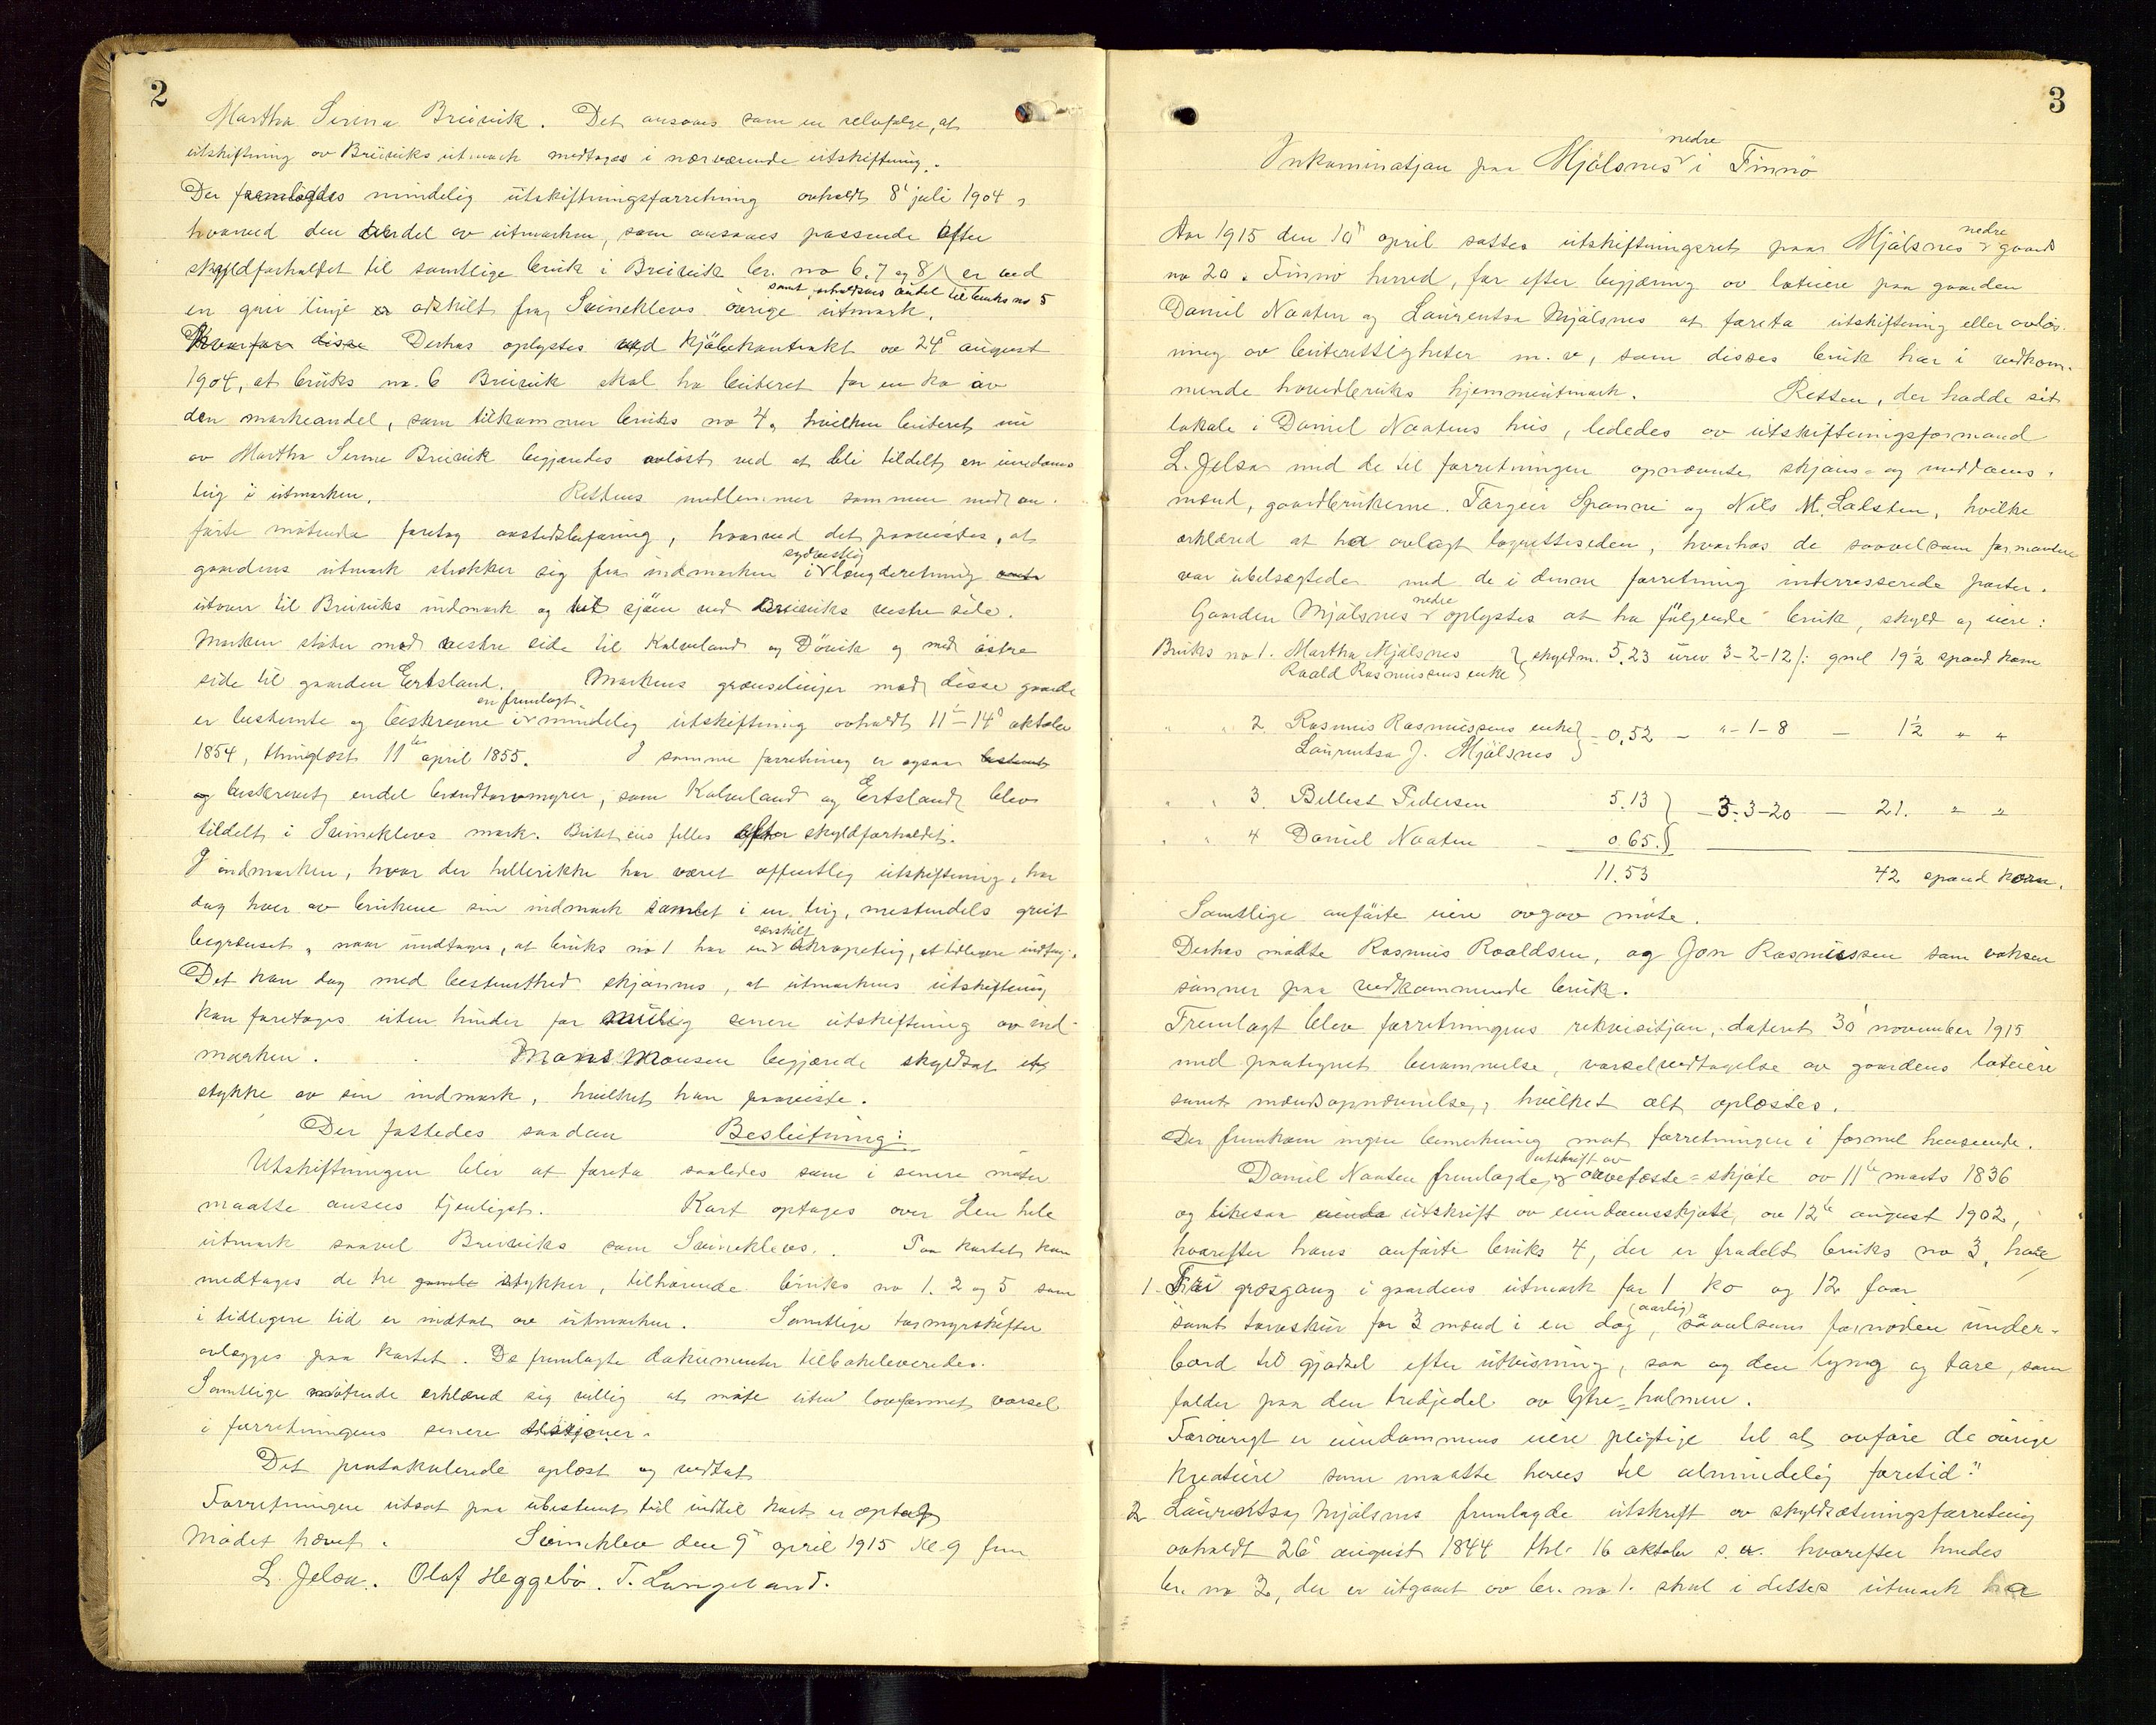 2
Martha Serina Breivik. Det ansaaes som en selvfølge, at
utskiftning av Breiviks utmark medtages i nærværende utskiftning.
Der fremlagdes mindelig utskiftningsforretning avholdt 8' juli 1904,
hvorved den andel av utmarken, som ansaaes passende efter
skyldforholdet til samtlige bruk i Breivik br. no 6, 7 og 8 er ved
samt avholdes andel til bruks no 5
en grei linje adskilt fra Svineklevs øvrige utmark.
Hvorfor disse Derhos oplystes ved kjøbekontrakt av 24' august
1904, at bruks no. 6 Breivik skal ha beiteret for en ko av
den markeandel, som tilkommer bruks no 4, hvilken beiteret nu
av Martha Serine Breivik begjæredes avløst ved at bli tildelt en eiendoms
teig i utmarken. Rettens medlemmer sammen med an-
førte møtende foretog aastedsbefaring, hvorved det paavistes, at
sydvestlig
gaardens utmark strækker sig fra indmarken i længderetning
utover til Breiviks indmark og til sjøen ved Breiviks vestre side.
Marken støter mod vestre side til Kalveland og Døvik og med østre
side til gaarden Ertsland. Markens grænselinjer mod disse gaarde
en fremlagt
er bestemte og beskrevne i mindelig utskiftning avholdt 11'-14' oktober
1854, thinglæst 11te april 1855. I samme forretning er ogsaa bestemt
og beskrevet endel brændtorvmyrer, som Kalveland og Ertsland blev
tildelt i Svineklevs mark. Beitet eies felles efter skyldforholdet.
I indmarken, hvor der hellerikke har været offentlig utskiftning, har
dog hver av brukene sin indmark samlet i en teig, mestendels greit
særskilt
begrænset, naar undtages, at bruks no 1 har en teig, et tidligere indtag.
Det kan dog med bestemthed skjønnes, at utmarkens utskiftning
kan foretages uten hinder for mulig senere utskiftning av ind-
marken. Mons Monsen begjærede skyldsat et
stykke av sin indmark, hvilket han paaviste.
Der fattedes saadan Beslutning:
Utskiftningen blir at foreta saaledes som i senere møter
maatte ansees tjenligst. Kart optages over den hele
utmark saavel Breiviks som Svineklevs. Paa kartet kan
medtages de tre gamle stykker, tilhørende bruks no 1. 2 og 5 som
i tidligere tid er indtat av utmarken. Samtlige torvmyrskifter
avlægges paa kartet. De fremlagte dokumenter tilbakeleveredes.
Samtlige møtende erklæred sig villig at møte uten lovformet varsel
i forretningens senere
Det protokolerede oplæst og vedtat
Forretningen utsat paa ubestemt tid indtil kart er optat
Mødet hævet. Svineklev den 9' april 1915 Kl. 9 fm
L. Jelsa. Olaf Heggebø. T. Langeland.
3
nedre
Inkaminatjon paa Mjølsnes i Finnø
nedre
Aar 1915 den 10' april sattes utskiftningsret paa Mjølsnes gaards
no 20 i Finnø herred, for efter begjæring av loteiere paa gaarden
Daniel Naaten og Laurentsa Mjølsnes at foreta utskiftning eller avløs-
ning av beiterettigheter m. v, som disses bruk har i vedkom-
mende hovedbruks hjemmeutmark. Retten, der hadde sit
lokale i Daniel Naatens hus, lededes av utskiftningsformand
L. Jelsa med de til forretningen opnævnte skjøns- og meddoms-
mænd, gaardbrukerne Torgeir Spanne og Nils M. Ladstein, hvilke
erklæred at ha avlagt lagretteseden, hvorhos de saavelsom formanden
var ubeslægtede med de i denne forretning interesserede parter.
nedre
Gaarden Mjølsnes oplystes at ha følgende bruk, skyld og eiere:
Bruks no 1. Martha Mjølsnes skyldm. 5.23 urev 3-2-12/: gml 19½ spand korn
Roald Rasmussens enke
" " 2 Rasmus Rasmussens enke - 0,52 - "-1-8 - 1½ " "
Laurentsa J. Mjølsnes
" " 3. Bellest Pedersen 5.13 - 3-3-20 - 21. " "
" " 4 Daniel Naaten - 0.65.
11.53 42 spand korn.
Samtlige anførte eiere avgav møte.
Derhos mødte Rasmus Roaldsen, og Jon Rasmussen som voksen
sønner paa vedkommende bruk.
Fremlagt blev forretningens rekvisitjon, dateret 30' november 1915
med paategnet berammelse, varselvedtagelse av gaardens loteiere
samt mændsopnævnelse, hvilket alt oplæstes.
Der fremkom ingen bemerkning mot forretningen i formel henseende.
utskrift av
Daniel Naaten fremlagde arvefæste-skjøte av 11te marts 1836
og likesaa utskrift av eiendomsskjøte, av 12te august 1902,
hvorefter hans anførte bruks 4, der er fradelt bruks no 3, have
1. Fri græsgang i gaardens utmark for 1 ko og 12 faar
(aarlig)
samt torveskur for 3 mænd i en dag, saavelsom fornøden under-
bord til gjødsel efter utvisning, saa og den lyng og tare, som
falder paa den tredjedel av Ytre-holmen.
Forøvrigt er eiendommens eiere pligtige til at anføre de øvrige
kreaturer som maatte haves til almindelig foretid."
2 Laurentsa Mjølsnes fremlagde utskrift av skyldsætningsforretning
avholdt 26' august 1844 thl. 16 oktober s. a. hvorefter hendes
br. no 2, der er utgaaet av br. no 1. skal i dettes utmark ha